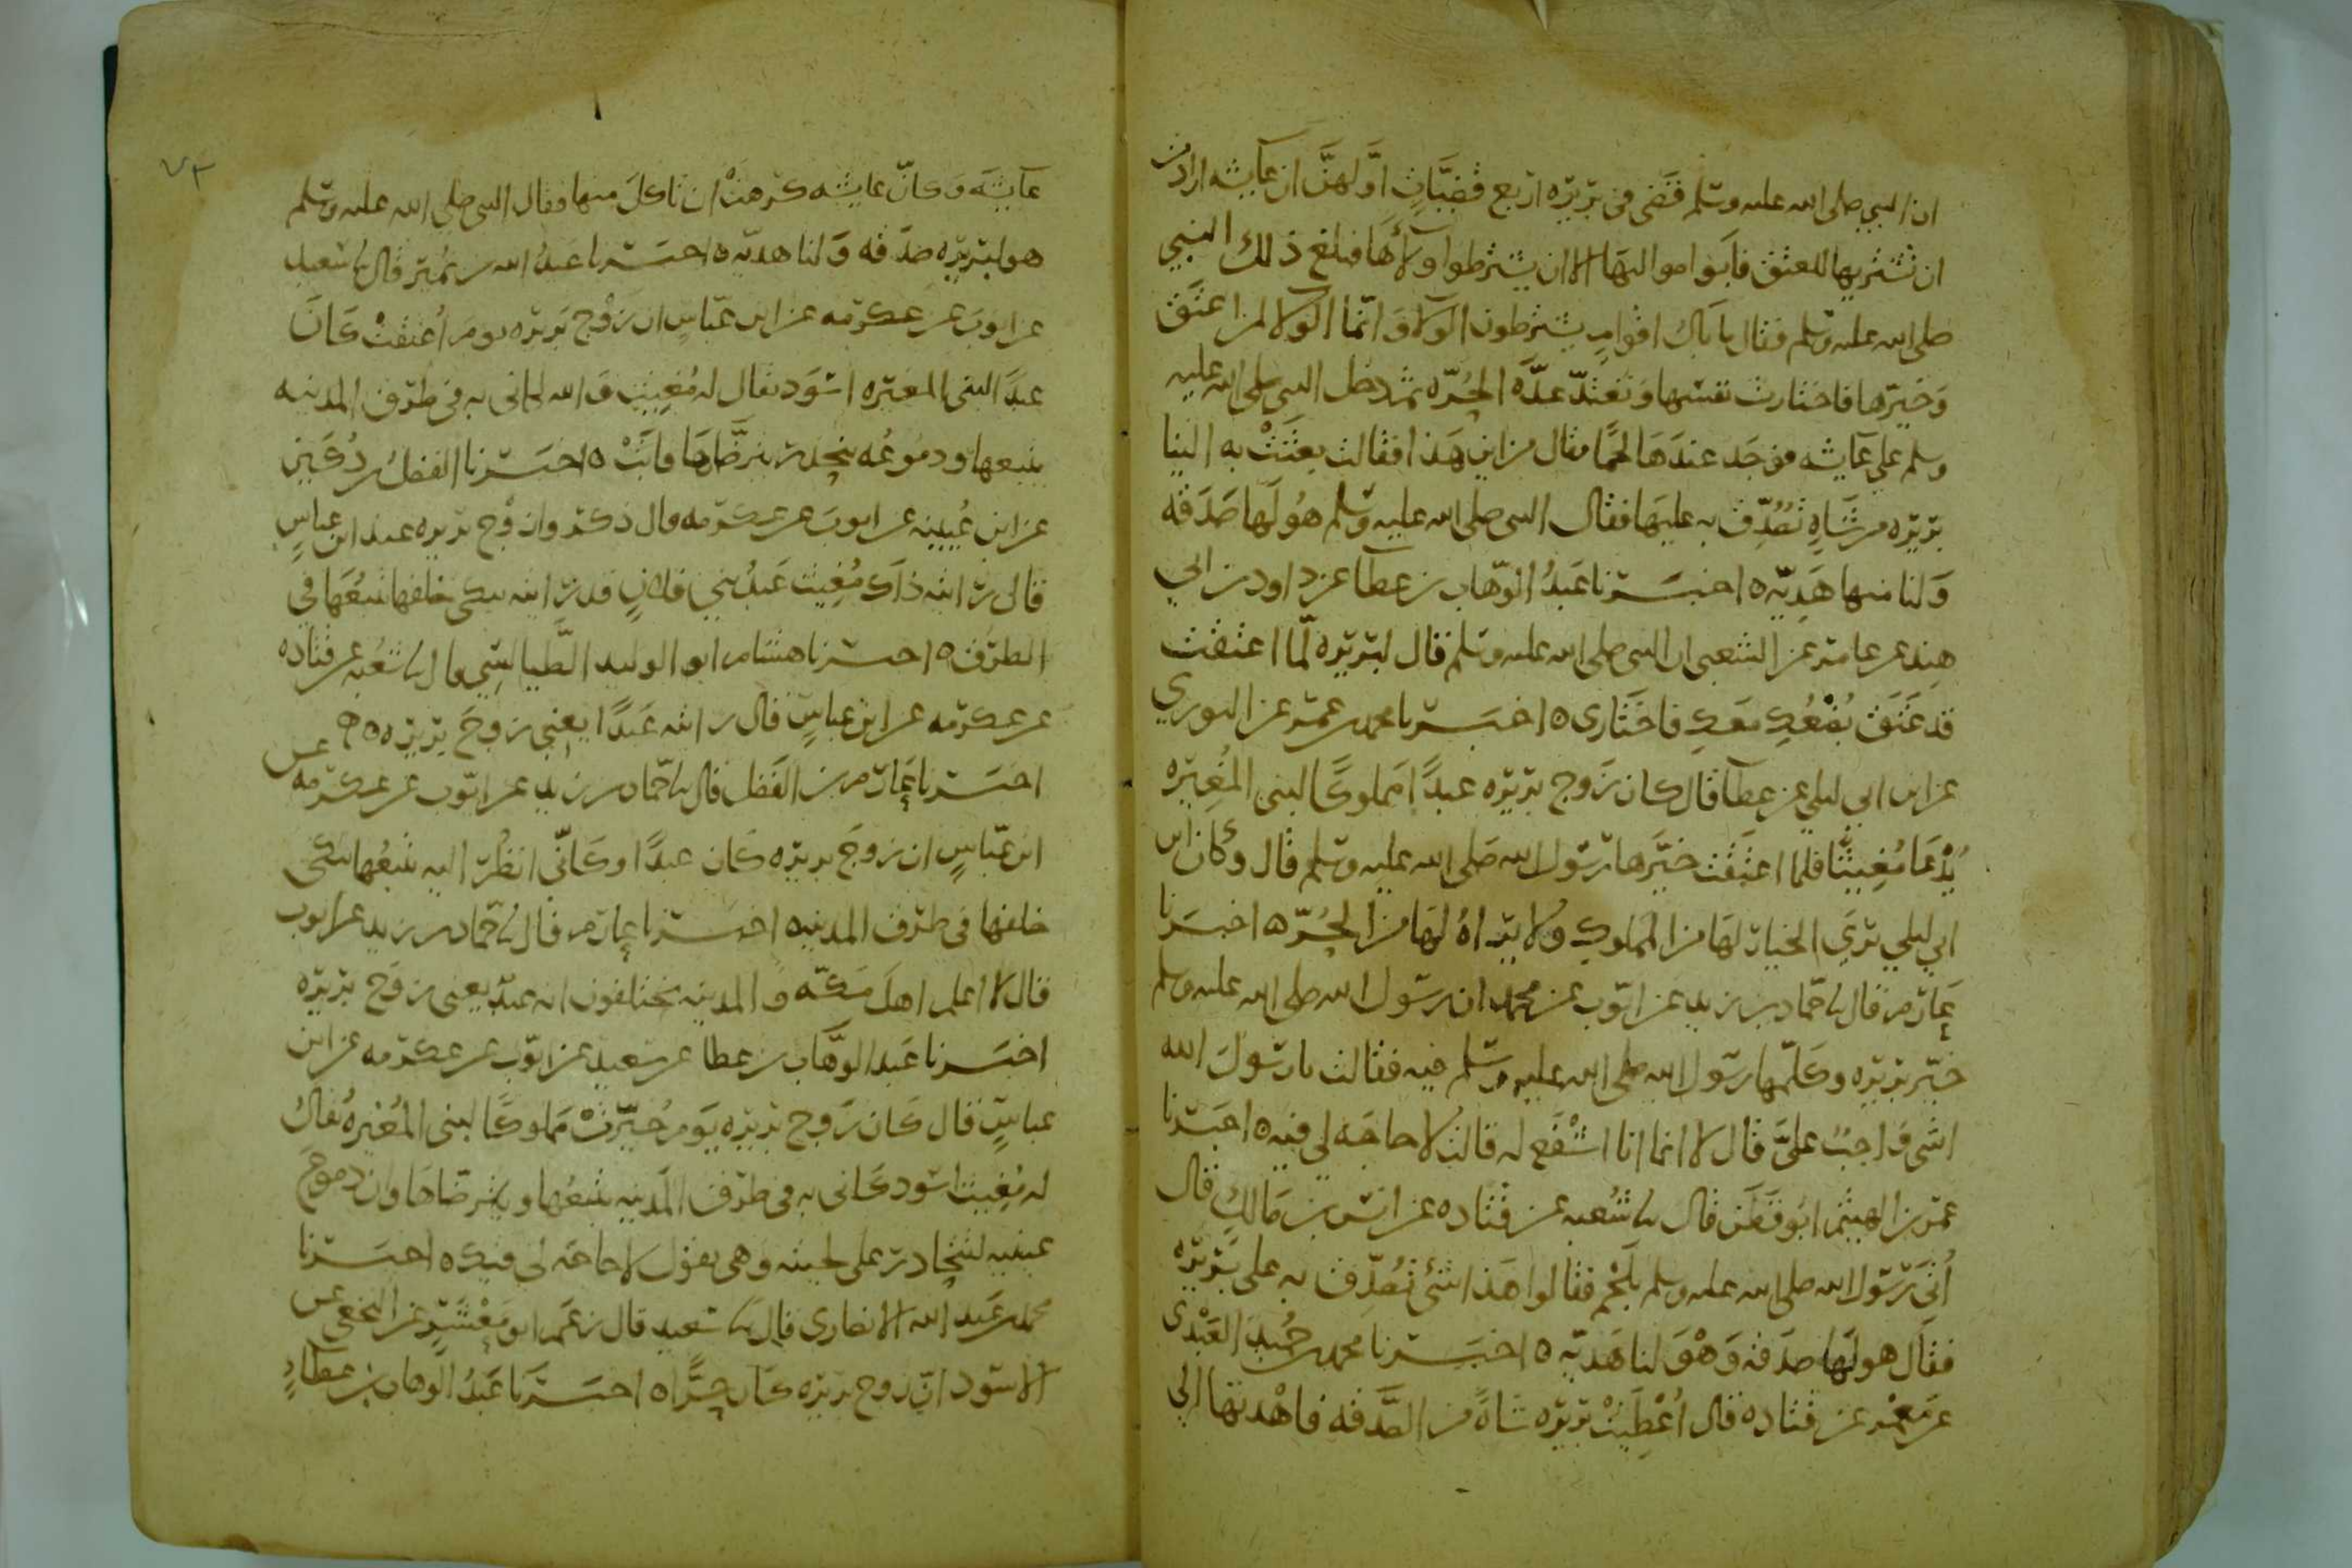 ان النبي صلى الله عليه وسلم قضى في بريره اربع قضيات اولهن ان عايشه ارادت
ان تشتريها للعتق فابوا مواليها الا ان يشترطوا ولاءها فبلغ ذلك النبي
صلى الله عليه وسلم فقال ما بال اقوام يشترطون الولا وانما الولا لمن اعتق
وخيرها فاختارت نفسها وتعتد عدة الحره ثم دخل النبي صلى الله عليه
وسلم على عايشه فوجد عندها لحما فقال من اين هذا فقالت بعثت به الينا
بريره من شاه تصدق به عليها فقال النبي صلى الله عليه وسلم هو لها صدقه
ولنا منها هديه ه اخبرنا عبد الوهاب بن عطا عن داود بن ابي
هند عن عامر عن الشعبي ان النبي صلى الله عليه وسلم قال لبريره لما اعتقت
قد عتق بضعك معك فاختاري ه اخبرنا محمد بن عمر عن الثوري
عن ابن ابي ليلى عن عطا قال كان زوج بريره عبدا مملوكا لبني المغيره
يدعا مغيثا فلما اعتقت خيرها رسول الله صلى الله عليه وسلم قال وكان ابن
ابي ليلي يرى الخيار لها من المملوك ولا يراه لها من الحره ه اخبرنا
عارم قال نا حماد بن زيد عن ايوب عن محمد ان رسول الله صلى الله عليه وسلم
خير بريره وكلمها رسول الله صلى الله عليه وسلم فيه فقالت يا رسول الله
اشي واجب علي قال لا انما انا اشفع له قالت لا حاجه لي فيه ه اخبرنا
عمر بن الهيثم ابو قطن قال نا شعبه عن قتاده عن انس بن مالك قال
أتي رسول الله صلى الله عليه وسلم بلحم فقالوا هذا شئ تصدق به على بريره
فقال هو لها صدقه وهو لنا هديه ه اخبرنا محمد بن حميد العبدي
عن معمر عن قتاده قال أعطيت بريره شاة من الصدقه فاهدتها الي
٧٣
عايشه وكان عايشه كرهت ان تاكل منها فقال النبي صلى الله عليه وسلم
هو لبريره صدقه ولنا هديه ه اخبرنا عبد الله بن نمير قال نا سعيد
عن ايوب عن عكرمه عن ابن عباس ان زوج بريره يوم أعتقت كان
عبدا لبني المغيره اسود يقال له مغيث والله لكاني به في طرق المدينه
يتبعها ودموعه تنحدر يترضاها فابت ه اخبرنا الفضل بن دكين
عن ابن عيينه عن ايوب عن عكرمه قال ذكر زوج بريره عند ابن عباس
قال ذاك مغيث عبد بني فلان قد رايته يبكي خلفها يتبعها في
الطرق ه اخبرنا هشام ابو الوليد الطيالسي قال نا شعبه عن قتاده
عن عكرمه عن ابن عباس قال رايته عبدا يعني زوج بريره ه
اخبرنا عارم بن الفضل قال نا حماد بن زيد عن ايوب عن عكرمه عن
ابن عباس ان زوج بريره كان عبدا وكاني انظر اليه يتبعها يبكي
خلفها في طرق المدينه اخبرنا عارم قال نا حماد بن زيد عن ايوب
قال لا اعلم اهل مكه والمدينه يختلفون انه عبد يعني زوج بريره
اخبرنا عبد الوهاب بن عطا عن سعيد عن ايوب عن عكرمه عن ابن
عباس قال كان زوج بريره يوم خيرت مملوكا لبني المغيره يقال
له مغيث اسود كاني به في طرق المدينه يتبعها ويترضاها وان دموع
عينيه لتتحادر على لحيته وهي تقول لا حاجه لي فيك ه اخبرنا
محمد بن عبد الله الانصاري قال نا سعيد قال زعم ابو معشر عن النخعي عن
الاسود ان زوج بريره كان حرا ه اخبرنا عبد الوهاب بن عطاء